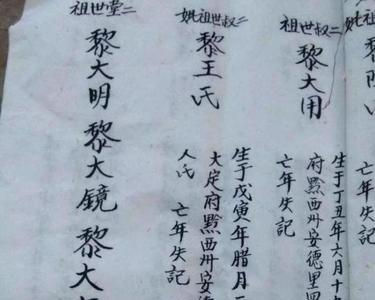 二叔世祖
黎大用
生于丁丑年六月十
府黔西州安德里四
亡年失記
二叔世祖妣
黎王氏
生于戊寅年腊月
大定府黔西州安德
人氏 亡年失記
二堂世祖
黎大明 黎大鏡 黎大